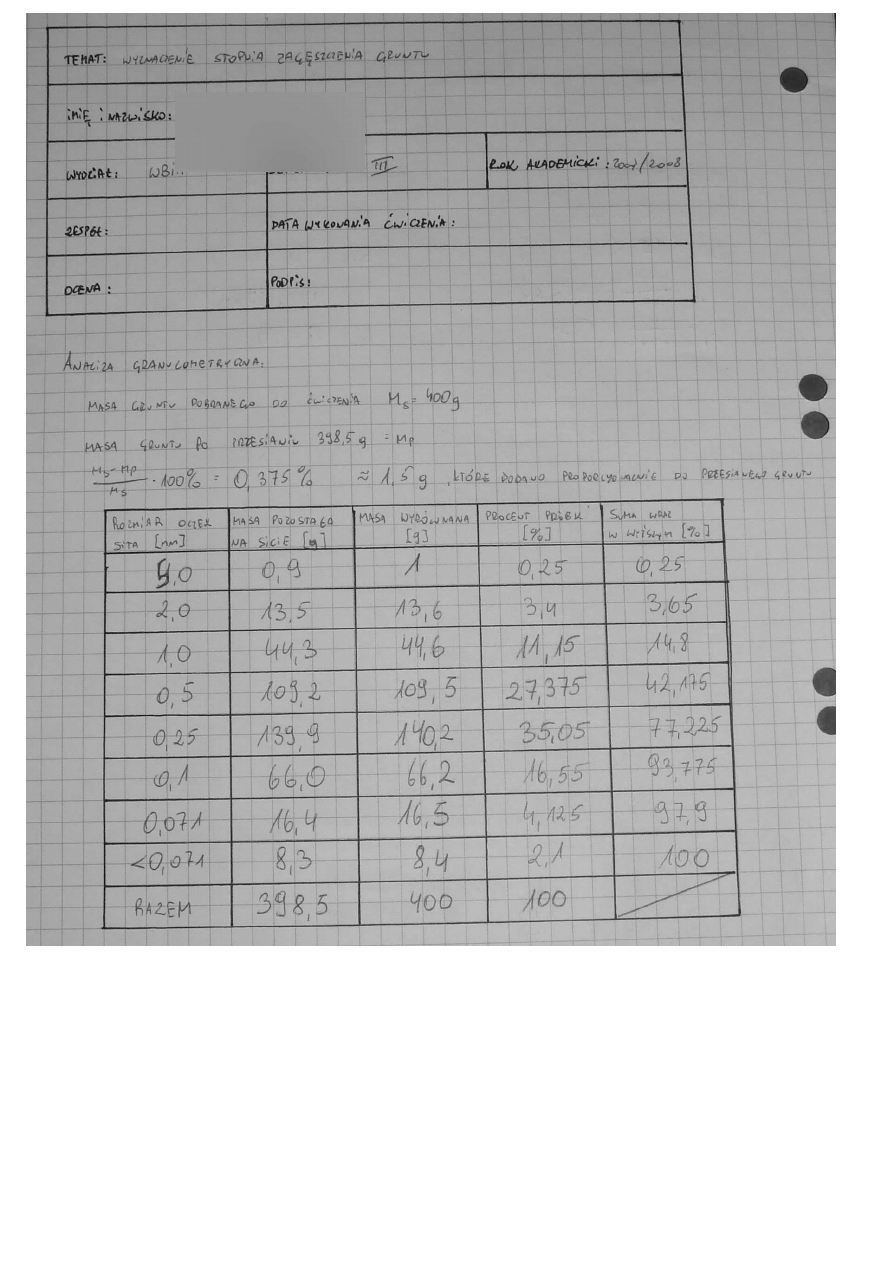 TEMAT: WYZNACZENIE STOPNIA ZAGĘSZCZENIA GRUNTU
IMIĘ I NAZWISKO:
WYDZIAŁ: WBi.. III ROK AKADEMICKI: 2007/2008
ZESPÓŁ: DATA WYKONANIA ĆWICZENIA:
OCENA: PODPIS:
ANALIZA GRANULOMETRYCZNA:
MASA GRUNTU POBRANEGO DO ĆWICZENIA Ms = 400g
MASA GRUNTU PO PRZESIANIU 398,5 g = Mp
Ms-Mp/Ms · 100% = 0,375% ≈ 1,5 g, KTÓRE DODANO PROPORCJONALNIE DO PRZESIANEGO GRUNTU
ROZMIAR OCZEK MASA POZOSTAŁA MASA WYRÓWNANA PROCENT PRÓBK SUMA WRAZ
SITA [mm] NA SICIE [g] [g] [%] W WYŻSZYM [%]
5,0 0,9 1 0,25 0,25
2,0 13,5 13,6 3,4 3,65
1,0 44,3 44,6 11,15 14,8
0,5 109,2 109,5 27,375 42,175
0,25 139,9 140,2 35,05 77,225
0,1 66,0 66,2 16,55 93,775
0,071 16,4 16,5 4,125 97,9
<0,071 8,3 8,4 2,1 100
RAZEM 398,5 400 100